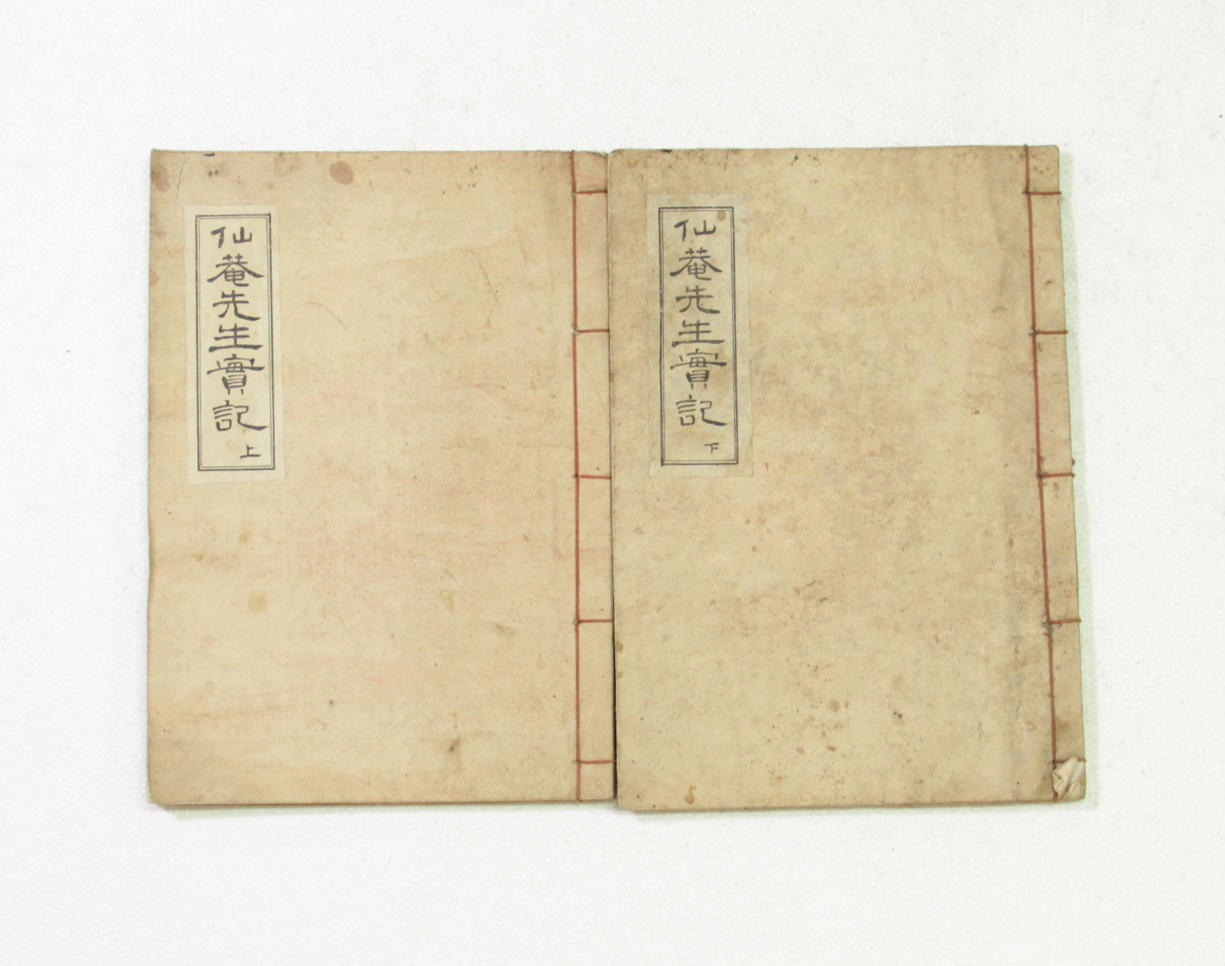 仙菴先生實記 上
仙菴先生實記 下